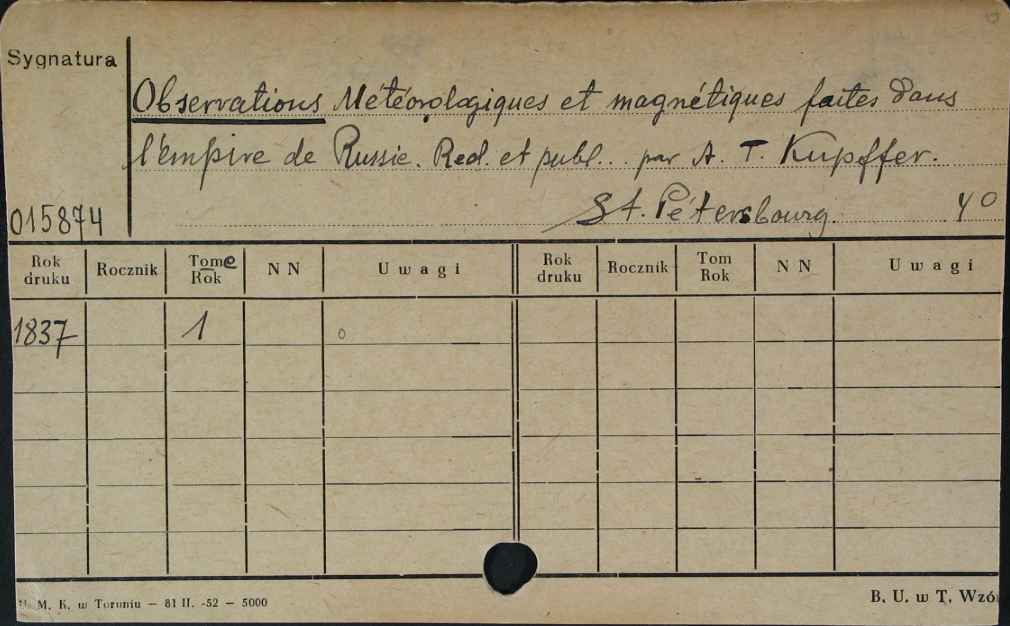 Sygnatura
Observations Météorologiques et magnétiques faites dans
l'émpire de Russie. Red. et publ... par A. T. Kupffer.
St. Pétersbourg. 4°
015874
Rok druku Rocznik Tome Rok NN Uwagi Rok druku Rocznik Tom Rok NN Uwagi
1837 1 o
M. K. w Toruniu — 81 II. -52 — 5000 B. U. w T. Wzó